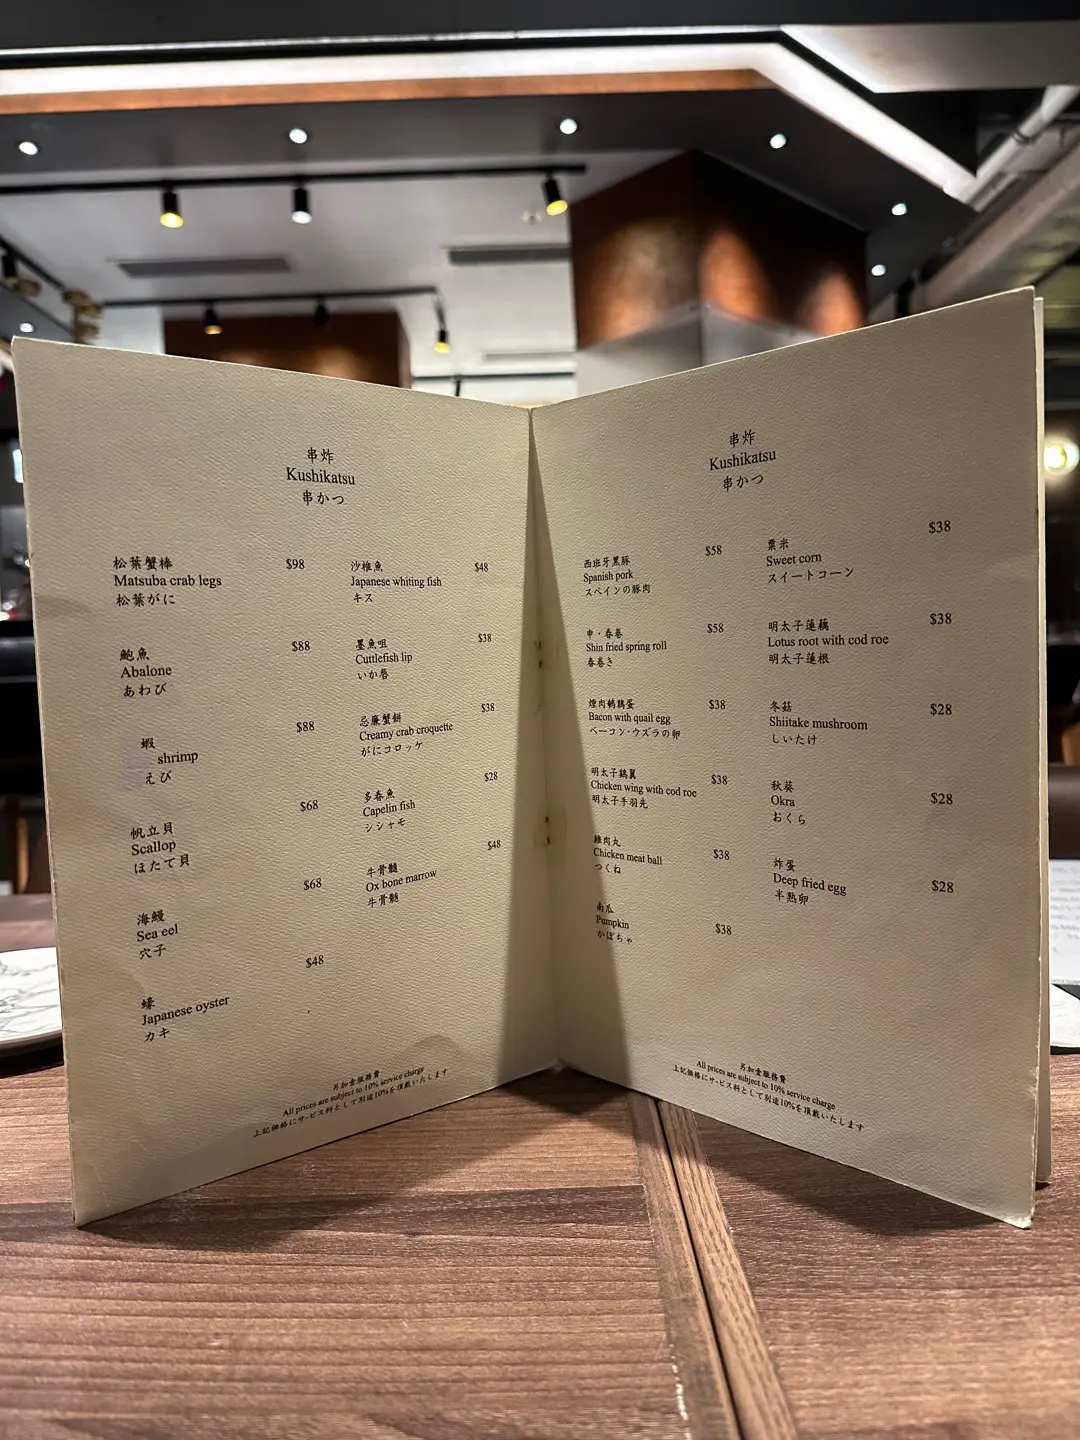 串炸
Kushikatsu
串かつ
松葉蟹棒 $98
Matsuba crab legs
松葉がに
鮑魚 $88
Abalone
あわび
蝦 $88
shrimp
えび
帆立貝 $68
Scallop
ほたて貝
海鰻 $68
Sea eel
穴子
蠔 $48
Japanese oyster
カキ
沙稚魚 $48
Japanese whiting fish
キス
墨魚咀 $38
Cuttlefish lip
いか唇
忌廉蟹餅 $38
Creamy crab croquette
がにコロッケ
多春魚 $28
Capelin fish
シシャモ
牛骨髓 $48
Ox bone marrow
牛骨髄
另加壹服務費
All prices are subject to 10% service charge
上記価格にサービス料として別途10%を頂戴いたします
串炸
Kushikatsu
串かつ
西班牙黑豚 $58
Spanish pork
スペインの豚肉
申・春卷 $58
Shin fried spring roll
春巻き
煙肉鵪鶉蛋 $38
Bacon with quail egg
ベーコン・ウズラの卵
明太子鷄翼 $38
Chicken wing with cod roe
明太子手羽先
雞肉丸 $38
Chicken meat ball
つくね
南瓜 $38
Pumpkin
かぼちゃ
粟米 $38
Sweet corn
スイートコーン
明太子蓮藕 $38
Lotus root with cod roe
明太子蓮根
冬菇 $28
Shiitake mushroom
しいたけ
秋葵 $28
Okra
おくら
炸蛋 $28
Deep fried egg
半熟卵
另加壹服務費
All prices are subject to 10% service charge
上記価格にサービス料として別途10%を頂戴いたします